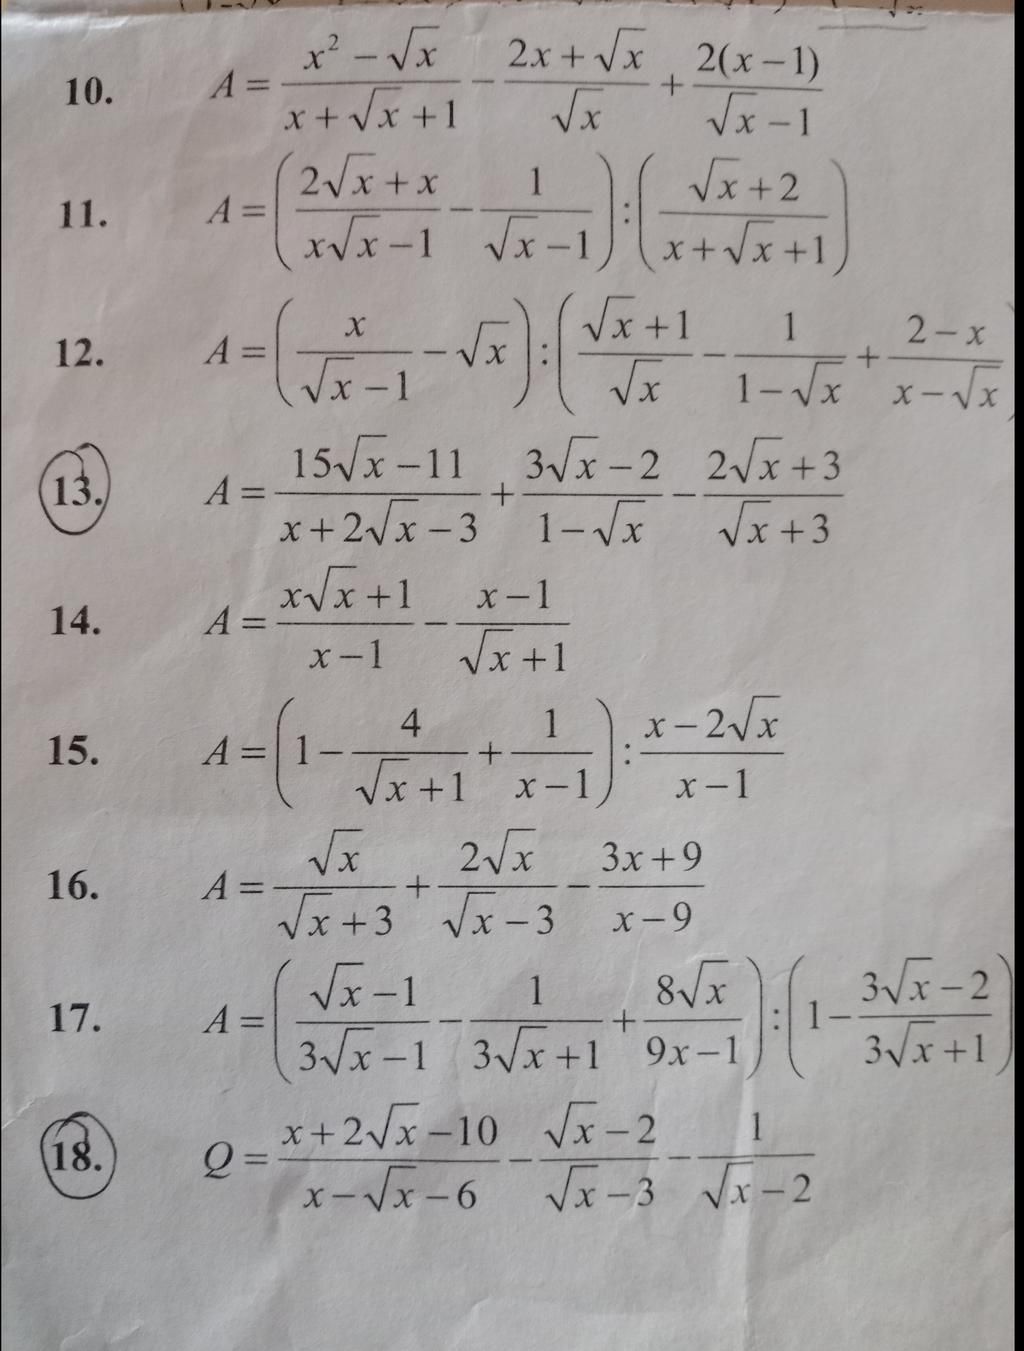 10. A = \frac{x^2 - \sqrt{x}}{x + \sqrt{x} + 1} - \frac{2x + \sqrt{x}}{\sqrt{x}} + \frac{2(x - 1)}{\sqrt{x} - 1}
11. A = \left( \frac{2\sqrt{x} + x}{x\sqrt{x} - 1} - \frac{1}{\sqrt{x} - 1} \right) : \left( \frac{\sqrt{x} + 2}{x + \sqrt{x} + 1} \right)
12. A = \left( \frac{x}{\sqrt{x} - 1} - \sqrt{x} \right) : \left( \frac{\sqrt{x} + 1}{\sqrt{x}} - \frac{1}{1 - \sqrt{x}} + \frac{2 - x}{x - \sqrt{x}} \right)
13. A = \frac{15\sqrt{x} - 11}{x + 2\sqrt{x} - 3} + \frac{3\sqrt{x} - 2}{1 - \sqrt{x}} - \frac{2\sqrt{x} + 3}{\sqrt{x} + 3}
14. A = \frac{x\sqrt{x} + 1}{x - 1} - \frac{x - 1}{\sqrt{x} + 1}
15. A = \left( 1 - \frac{4}{\sqrt{x} + 1} + \frac{1}{x - 1} \right) : \frac{x - 2\sqrt{x}}{x - 1}
16. A = \frac{\sqrt{x}}{\sqrt{x} + 3} + \frac{2\sqrt{x}}{\sqrt{x} - 3} - \frac{3x + 9}{x - 9}
17. A = \left( \frac{\sqrt{x} - 1}{3\sqrt{x} - 1} - \frac{1}{3\sqrt{x} + 1} + \frac{8\sqrt{x}}{9x - 1} \right) : \left( 1 - \frac{3\sqrt{x} - 2}{3\sqrt{x} + 1} \right)
18. Q = \frac{x + 2\sqrt{x} - 10}{x - \sqrt{x} - 6} - \frac{\sqrt{x} - 2}{\sqrt{x} - 3} - \frac{1}{\sqrt{x} - 2}